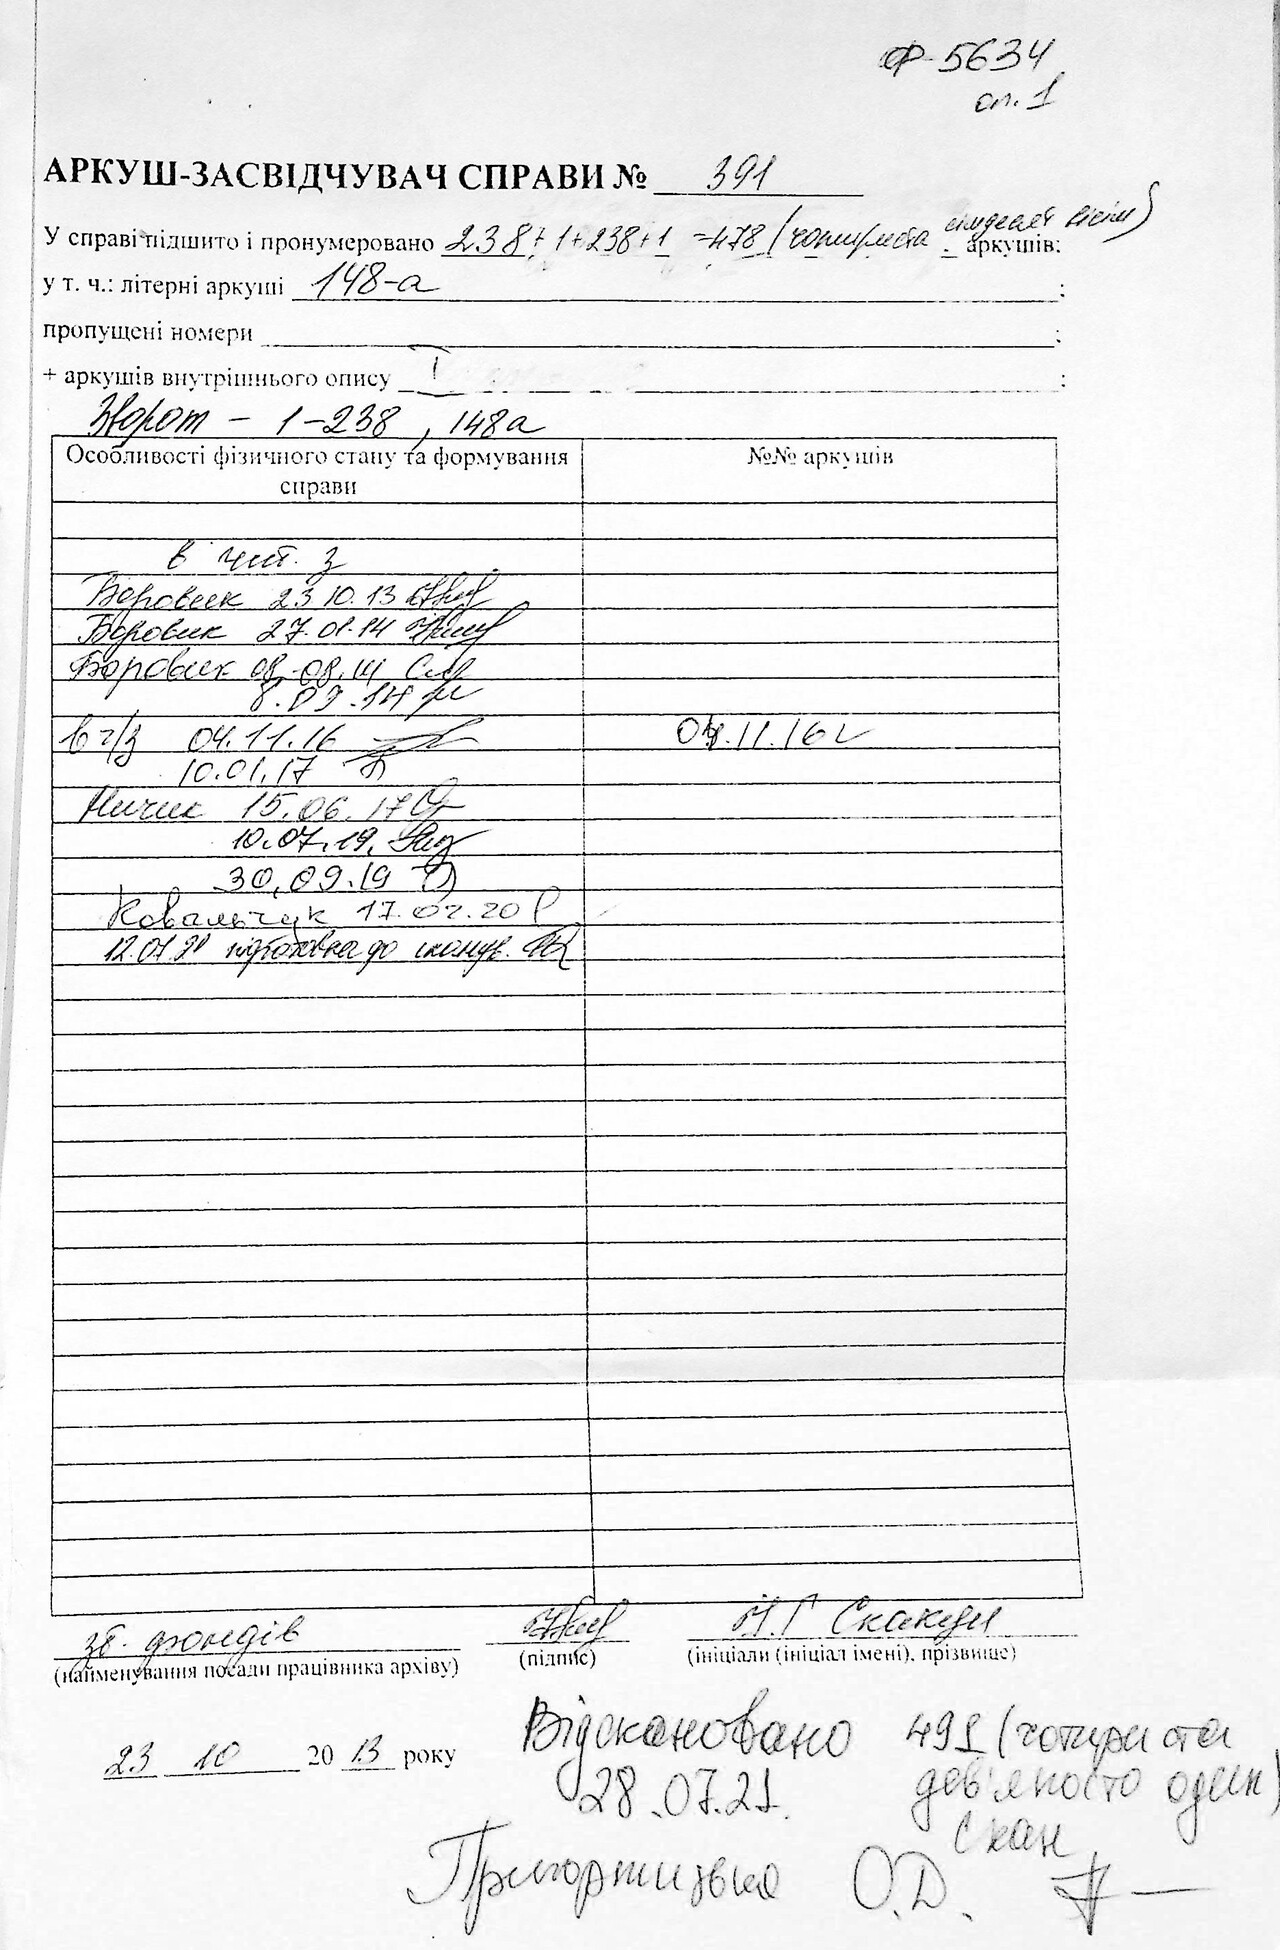 Ф-5634
оп. 1
АРКУШ-ЗАСВІДЧУВАЧ СПРАВИ № 391
У справі підшито і пронумеровано 238+1+238+1=478 (чотириста сімдесят вісім) аркушів;
у т. ч.: літерні аркуші 148-а ;
пропущені номери ;
+ аркушів внутрішнього опису 1 ;
Зворот – 1-238, 148а
Особливості фізичного стану та формування справи №№ аркушів
в чит. з
Боровик 23 10.13
Боровик 27.01.14
Боровик 08.08.14
8.09.14
в ч/з 04.11.16 04.11.16
10.01.17
15.06.17
10.07.19.
30.09.19
Ковальчук 17.02.20
12.01.21 підготовка до сканув.
зб. фондів Н.Г Скакун
(найменування посади працівника архіву) (підпис) (ініціали (ініціал імені), прізвище)
23 10 20 13 року
Відскановано 491 (чотириста
28.07.21. дев'яносто один)
скан
О.Д.